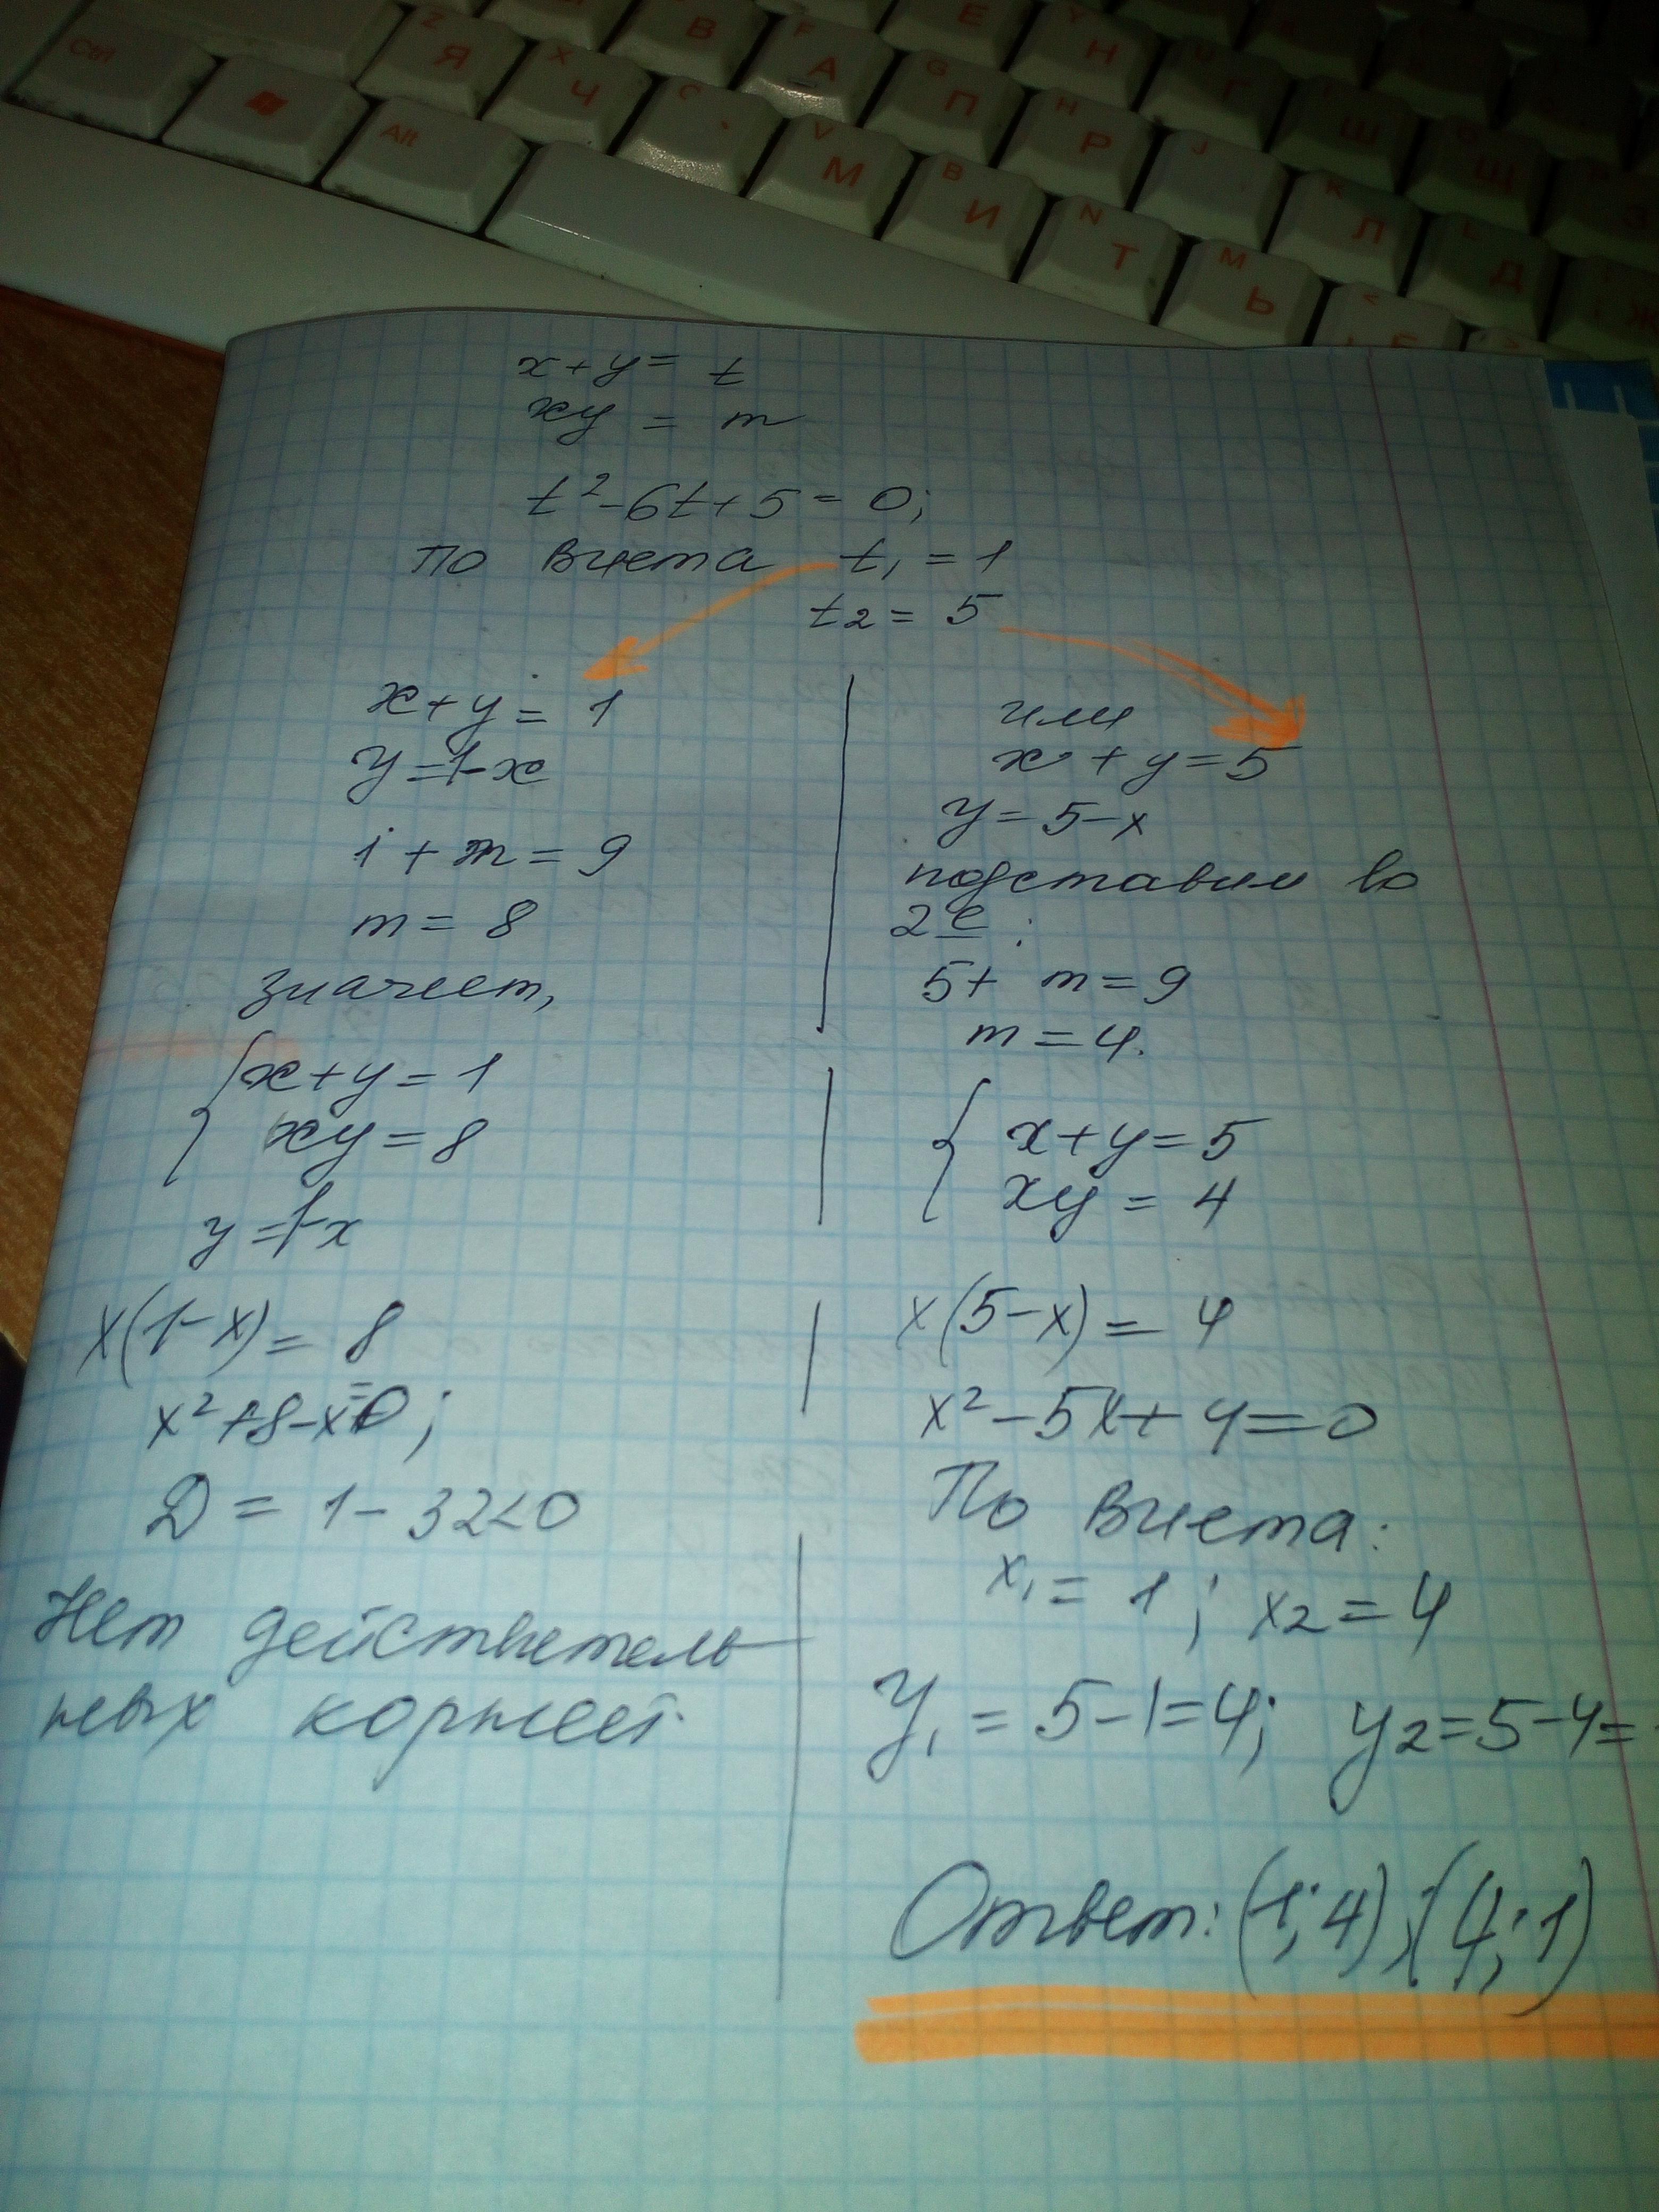 Ctrl
Alt
Z Я
X Ч
C
В
F А
V М
G П
Е
B И
H Р
Y Н
N Т
J
Г
M Ь
K Л
Ш
L Д
Щ
x+y= t
xy = m
t²-6t+5=0;
По Виета t₁=1
t₂=5
x+y=1
y=1-x
1+m=9
m=8
значит,
x+y=1
xy=8
y=1-x
x(1-x)=8
x²+8-x=0;
D=1-32<0
Нет действитель
ных корней.
или
x+y=5
y=5-x
подставим во
2е:
5+ m=9
m=4.
x+y=5
xy=4
x(5-x)=4
x²-5x+4=0
По Виета:
x₁=1; x₂=4
y₁=5-1=4; y₂=5-4=
Ответ: (1;4);(4;1)